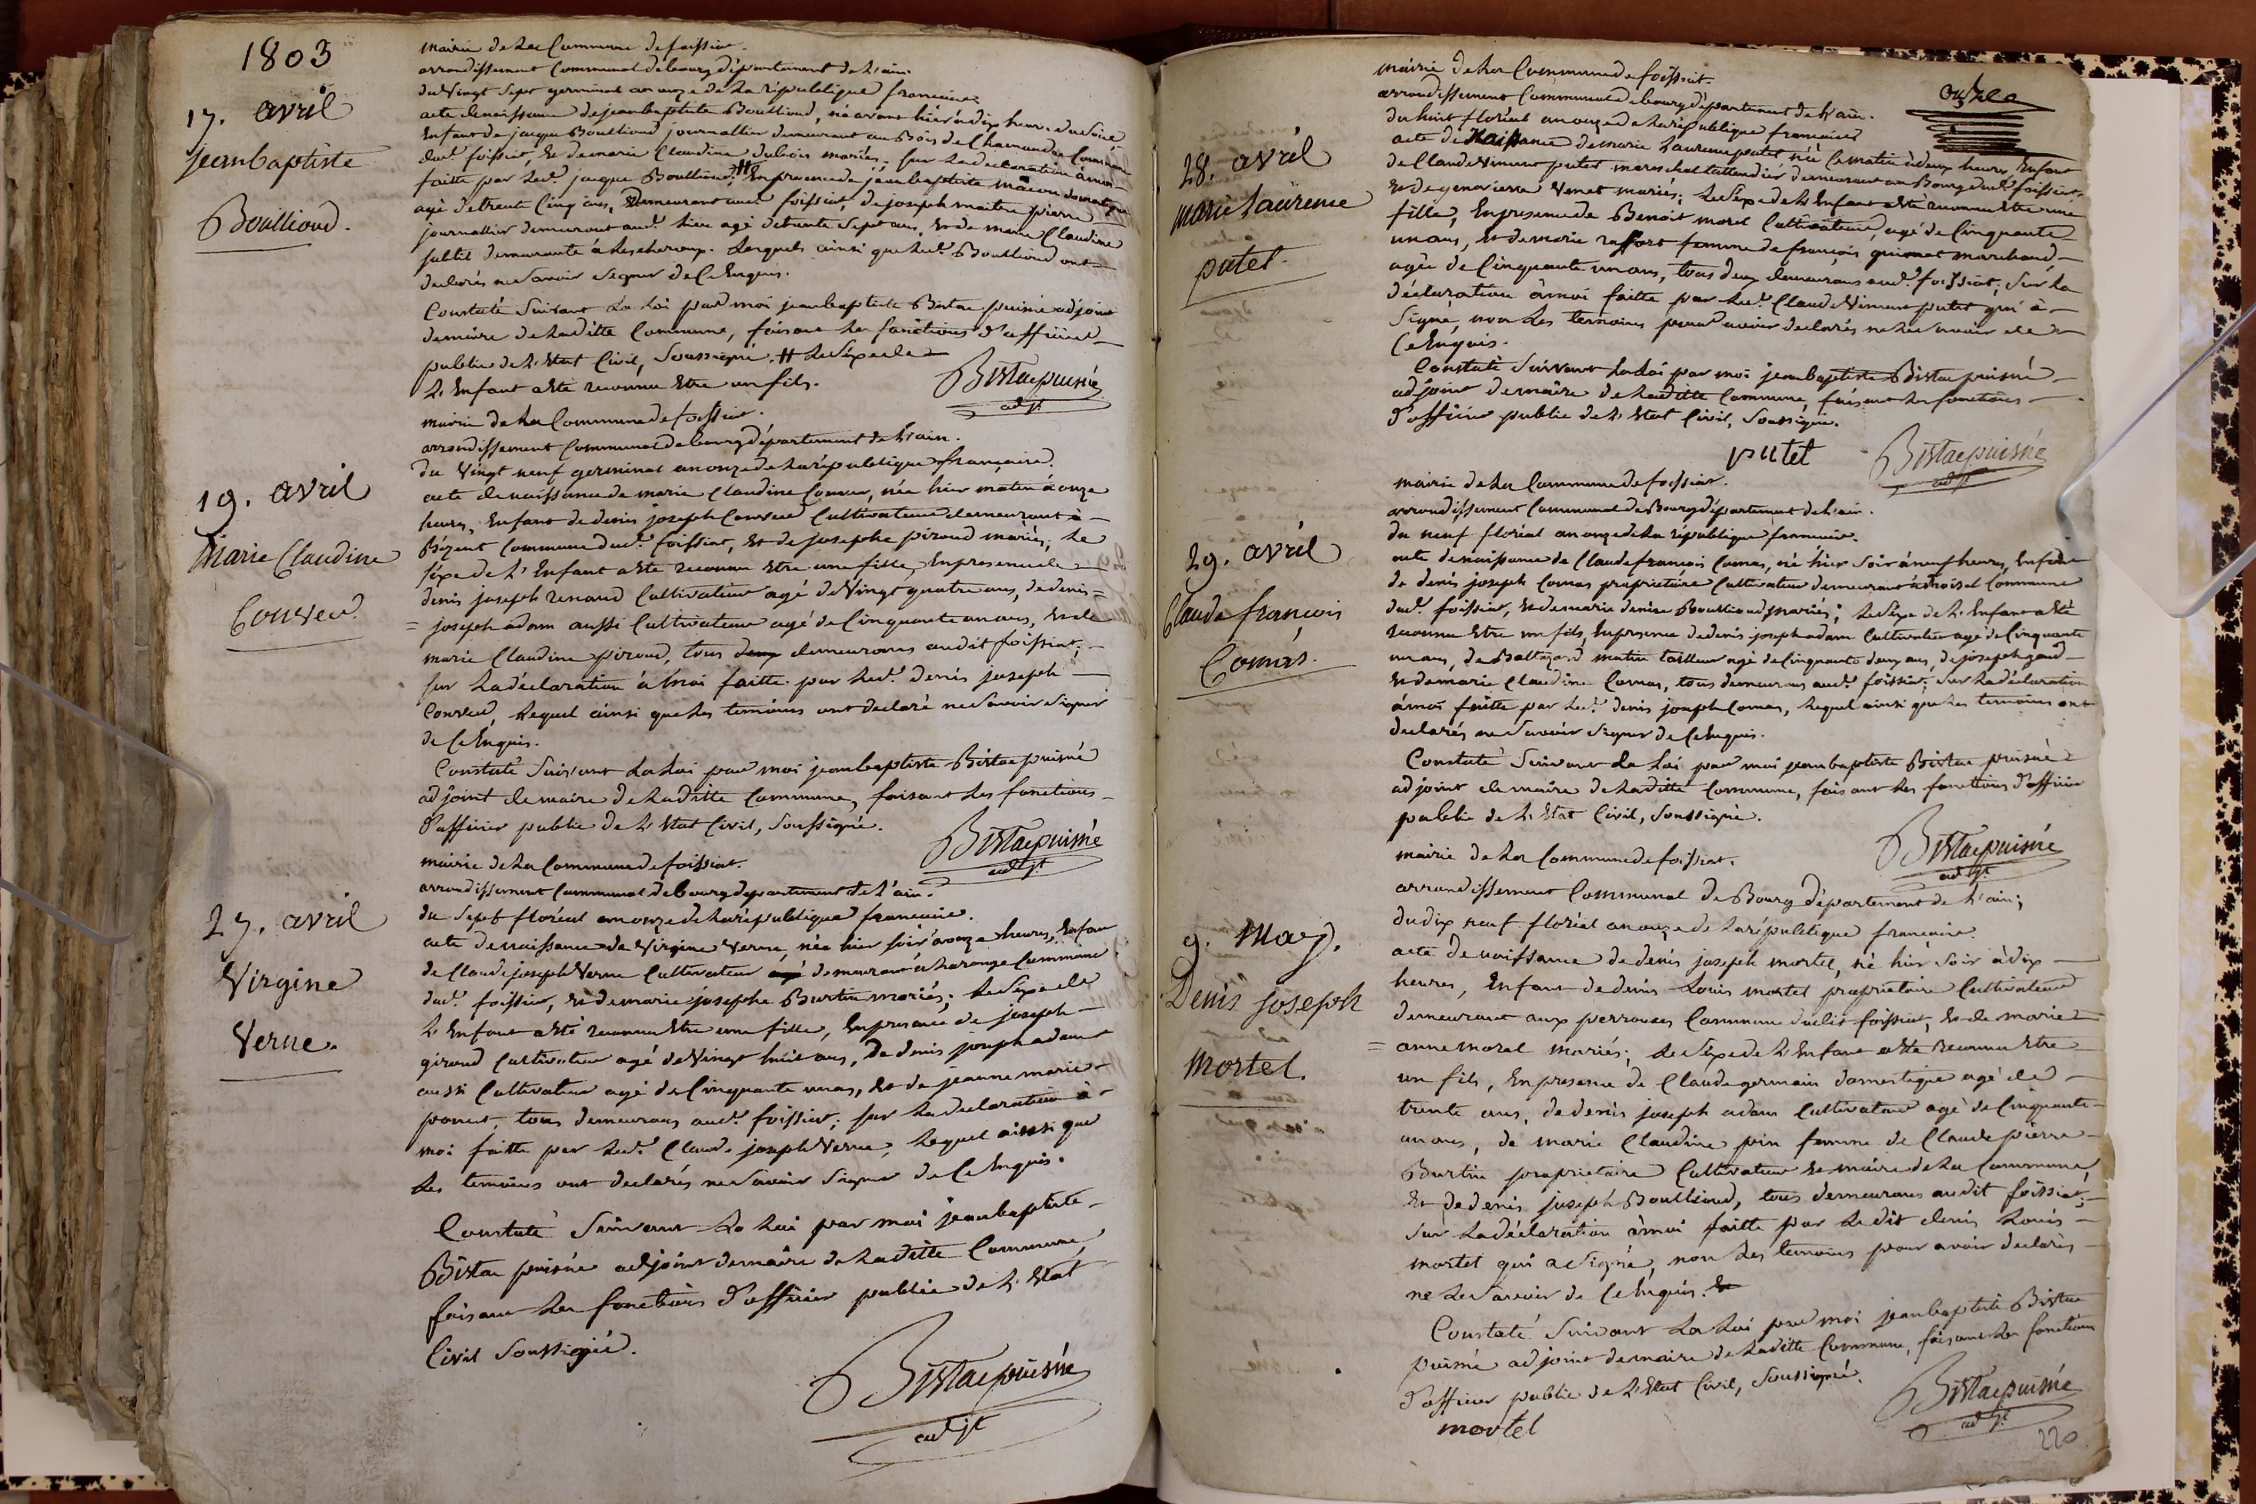 1803
17. avril
jeanbaptiste
Boullioud.
mairie de la Commune de foissiat.
arrondissement Communal de bourg département de l'ain.
du Vingt Sept germinal an onze de la république francaise.
acte de naissance de jeanbaptiste Boullioud, né avant hier à dix heures du Soir,
Enfant de jacque Boullioud journallier demeurant au Bois de Commune
dud.t foissiat, Et de marie Claudine dubois mariés; sur la declaration à moi
faitte par led.t jacque Boullioud; # En presence de jeanbaptiste domestique
agé de trente Cinq ans, Demeurant aud.t foissiat, de joseph maitre pierre
journallier demeurant aud.t lieu agé de trente Sept ans, Et de marie Claudine
demeurante à Lescheroux. Lesquels ainsi que led.t Boullioud ont
declarés ne Savoir Signer de Ce Enquis.
Constaté Suivant La Loi par moi jeanbaptiste Bistac puisné adjoint
de maire de Laditte Commune, faisant les fonctions d'officier
public de L'Etat Civil, Soussigné. # Le Séxe de
L'Enfant a Eté reconnu Etre un fils.
Bistac puisné
adjt
19. avril
Marie Claudine
Conver
mairie de La Commune de foissiat.
arrondissement Communal de bourg département de L'ain.
du Vingt neuf germinal an onze de La république francaise.
acte de naissance de marie Claudine Conver, née hier matin à onze
heures, Enfant de denis joseph Conver Cultivateur demeurant à
Bézent Commune dud.t foissiat, Et de josephe piroud mariés; Le
séxe de L'Enfant a Eté reconnu Etre une fille, En presence de
denis joseph renaud Cultivateur agé de Vingt quatre ans, de denis=
= joseph adam aussi Cultivateur agé de Cinquante un ans, Et de
marie Claudine piroud, tous demeurans audit foissiat;
sur La déclaration à Moi faitte par led.t denis joseph
Conver, Lequel ainsi que Les temoins ont declaré ne Savoir Signer
de Ce Enquis.
Constaté Suivant La Loi par moi jeanbaptiste Bistac puisné
adjoint de maire de Laditte Commune, faisant Les fonctions
d'officier public de L'Etat Civil, Soussigné.
Bistac puisné
adjt
27. avril
Virgine
Verne.
mairie de La Commune de foissiat.
arrondissement Communal de bourg département de L'ain.
du Sept floréal an onze de La république francaise.
acte de naissance de Virgine Verne, née hier soir à onze heures, Enfant
de Claude joseph Verne Cultivateur demeurant à Commune
dud.t foissiat, Et de marie josephe Burtin mariés; Le Séxe de
L'Enfant a Eté reconnu Etre une fille, En presence de joseph
giroud Cultivateur agé de Vingt huit ans, De denis joseph adam
aussi Cultivateur agé de Cinquante un ans, Et de jeanne marie
poncet, tous demeurans aud.t foissiat; sur La declaration à
moi faitte par led.t Claude joseph Verne, Lequel ainsi que
Les temoins ont declarés ne Savoir Signer de Ce Enquis.
Constaté Suivant La Loi par moi jeanbaptiste
Bistac puisné adjoint de maire de Laditte Commune,
faisant Les fonctions d'officier public de L'Etat
Civil Soussigné.
Bistac puisné
adjt
onze
28. avril
Marie Laurence
putet.
mairie de La Commune de foissiat.
arrondissement Communal de bourg département de L'ain.
du huit floréal an onze de La république francaise
acte de Naissance de marie Laurence putet, née Ce matin à deux heures, Enfant
de Claude Vincent putet mareschal taillandier demeurant au Bourg dud.t foissiat,
Et de genevieve Venet mariés; Le Séxe de L'Enfant a Eté reconnu Etre une
fille, En presence de Benoit morel Cultivateur, agé de Cinquante
un ans, Et de marie raffort femme de françois guionet marchand
agée de Cinquante un ans, tous deux demeurans aud.t foissiat; Sur La
déclaration à moi faitte par led.t Claude Vincent putet qui à
Signé, non Les temoins pour avoir declarés ne Le Savoir de
Ce Enquis.
Constaté Suivant La Loi par moi jeanbaptiste Bistac puisné
adjoint de maire de Laditte Commune, faisant Les fonctions
d'officier public de L'Etat Civil, Soussigné.
putet
Bistac puisné
adjt
29. avril
Claude françois
Comas.
mairie de La Commune de foissiat.
arrondissement Communal de Bourg département de L'ain.
du neuf floréal an onze de La république francaise.
acte de naissance de Claude francois Comas, né hier Soir à neuf heures, Enfant
de denis joseph Comas proprietaire Cultivateur demeurant à Commune
dud.t foissiat, Et de marie denise Boullioud mariés; Le Séxe de L'Enfant a Eté
reconnu Etre un fils, En presence de denis joseph adam Cultivateur agé de Cinquante
un ans, de Baltazard matin tailleur agé de Cinquante deux ans, de joseph
Et de marie Claudine Comas, tous demeurans aud.t foissiat; Sur La déclaration
à moi faitte par led.t denis joseph Comas, Lequel ainsi que Les temoins ont
declarés ne Savoir Signer de Ce Enquis.
Constaté Suivant La Loi par moi jeanbaptiste Bistac puisné
adjoint de maire de Laditte Commune, faisant Les fonctions d'officier
public de L'Etat Civil, Soussigné.
Bistac puisné
adjt
9. May.
Denis joseph
Mortel.
mairie de La Commune de foissiat.
arrondissement Communal de Bourg département de L'ain;
du dix neuf floréal an onze de La république francaise.
acte de naissance de denis joseph mortel, né hier Soir à dix
heures, Enfant de denis Louis mortel proprietaire Cultivateur
demeurant aux perrouses Commune dudit foissiat, Et de marie
= anne morel mariés; Le Séxe de L'Enfant a Eté reconnu Etre
un fils, En presence de Claude germain domestique agé de
trente ans, de denis joseph adam Cultivateur agé de Cinquante
un ans, de marie Claudine pin femme de Claude pierre
Burtin proprietaire Cultivateur Et maire de La Commune,
Et de denis joseph Boullioud, tous demeurans audit foissiat;
Sur La déclaration à moi faitte par Ledit denis Louis
mortel qui a Signé, non Les temoins pour avoir declarés
ne Le Savoir de Ce Enquis.
Constaté Suivant La Loi par moi jeanbaptiste Bistac
puisné adjoint de maire de Laditte Commune, faisant Les fonctions
d'officier public de L'Etat Civil, Soussigné.
mortel
Bistac puisné
adjt
220